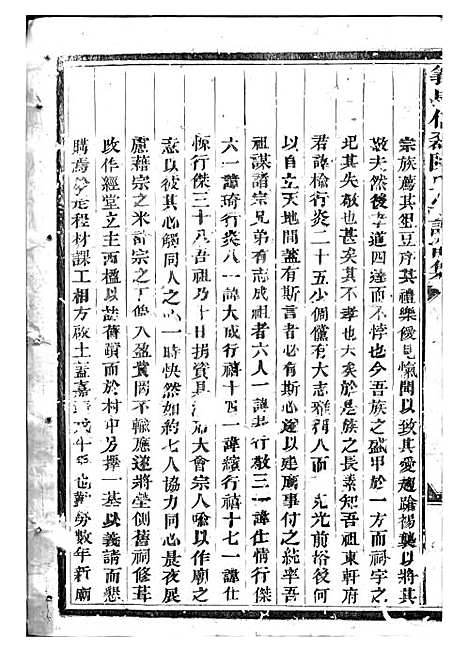 宗族薦其俎豆序其禮樂優見愾聞以致其愛趨蹌揚襲以將其
敬夫然後孝道四達而不悖也今吾族之盛甲於一方而祠宇之
圮其失敬也甚矣其不孝也大矣於是族之長素知吾祖東軒府
君諱榆行炎二十五少倜儻有大志雅何八面光前裕後何
以自立天地間哉有斯言者必有斯心遂以建廣事付之統率吾
祖謀諸宗兄弟有志成祖者六人一諱行敬三一諱仕情行傑
六一諱琦行炎八一諱大成行禧十四一諱續行禧十七一諱仕
恢行傑三十八吾祖乃卜日捐資具酒大會宗人喻以作廟之
志以彼其心觸同人之心一時快然如約七人協力同心晨夜展
慮藉宗之米計宗之丁俵入盈冀罔不輸應遂將瑩側舊祠修葺
改作經堂立主西楹以誌舊蹟而於村中乃擇一基以義請而懇
購焉於是程材課工相方啟土蓋嘉年也勤勞數年新廟